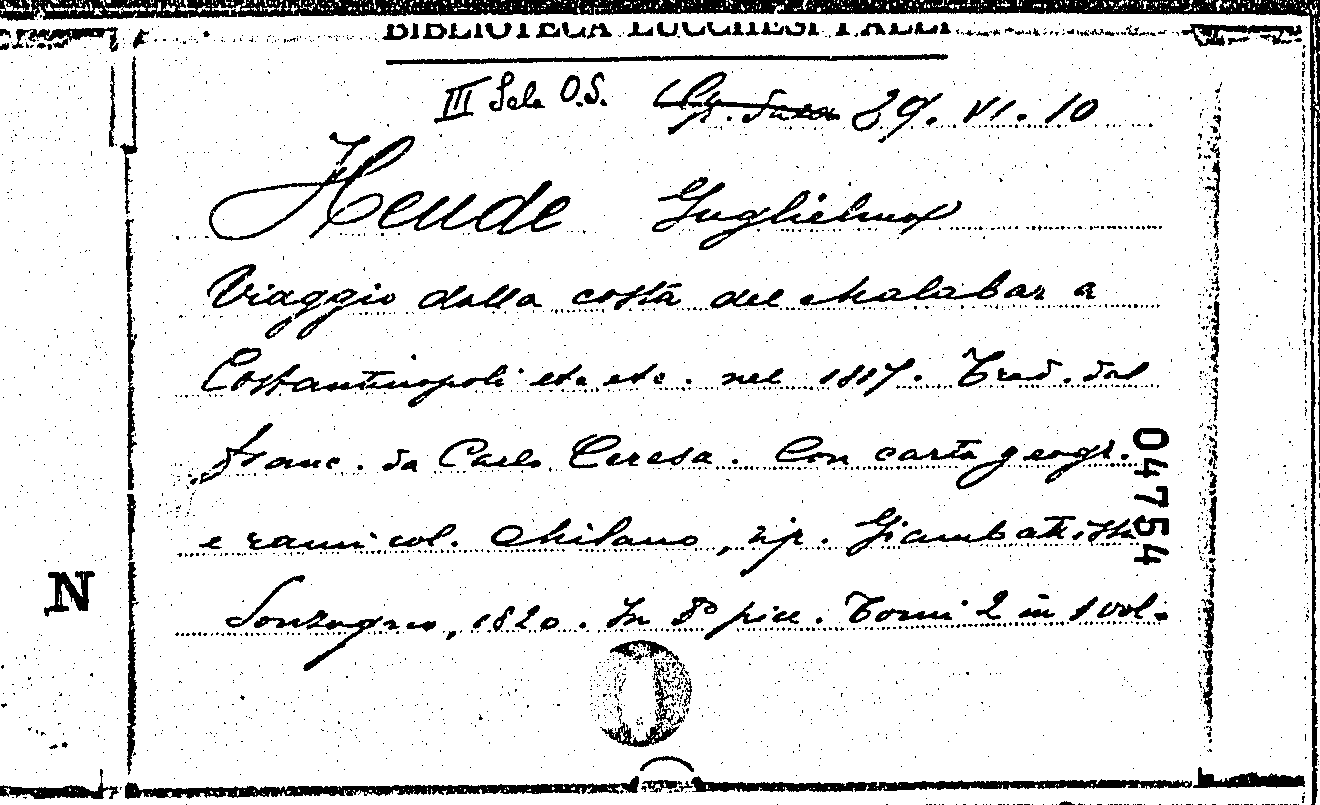 BIBLIOTECA LUCCHESI PALLI
III Sala O.S. Gr. Sala 29. VI. 10
Heude Guglielmo
Viaggio dalla costa del Malabar a
Costantinopoli etc. etc. nel 1817. Trad. dal
franc. da Carlo Ceresa. Con carta geogr.
e rami col. Milano, tip. Giambattista
Sonzogno, 1820. In 8º picc. Tomi 2 in 1 vol.
04754
N